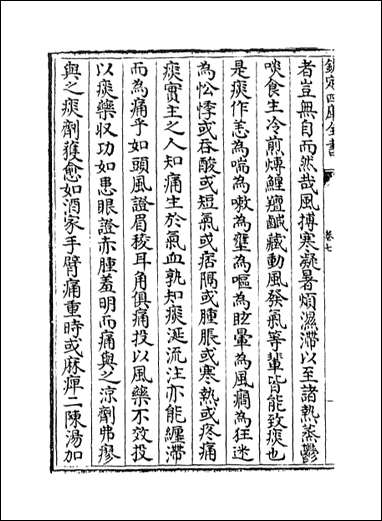 欽定四庫全書
卷七
者豈無自而然哉風搏寒凝暑煩濕滯以至諸熱蒸鬱
啖食生冷煎煿鯹羶鹹藏動風發氣等輩皆能致痰也
是痰作恙為喘為嗽為壅為嘔為眩暈為風癇為狂迷
為忪悸或吞酸或短氣或痞隔或腫脹或寒熱或疼痛
痰實主之人知痛主於氣血孰知痰涎流注亦能纏滯
而為痛乎如頭風證眉稜耳角俱痛投以風藥不效投
以痰藥収功如患眼證赤腫羞明而痛與之涼劑弗瘳
與之痰劑獲愈如酒家手臂痛重時或麻痺二陳湯加